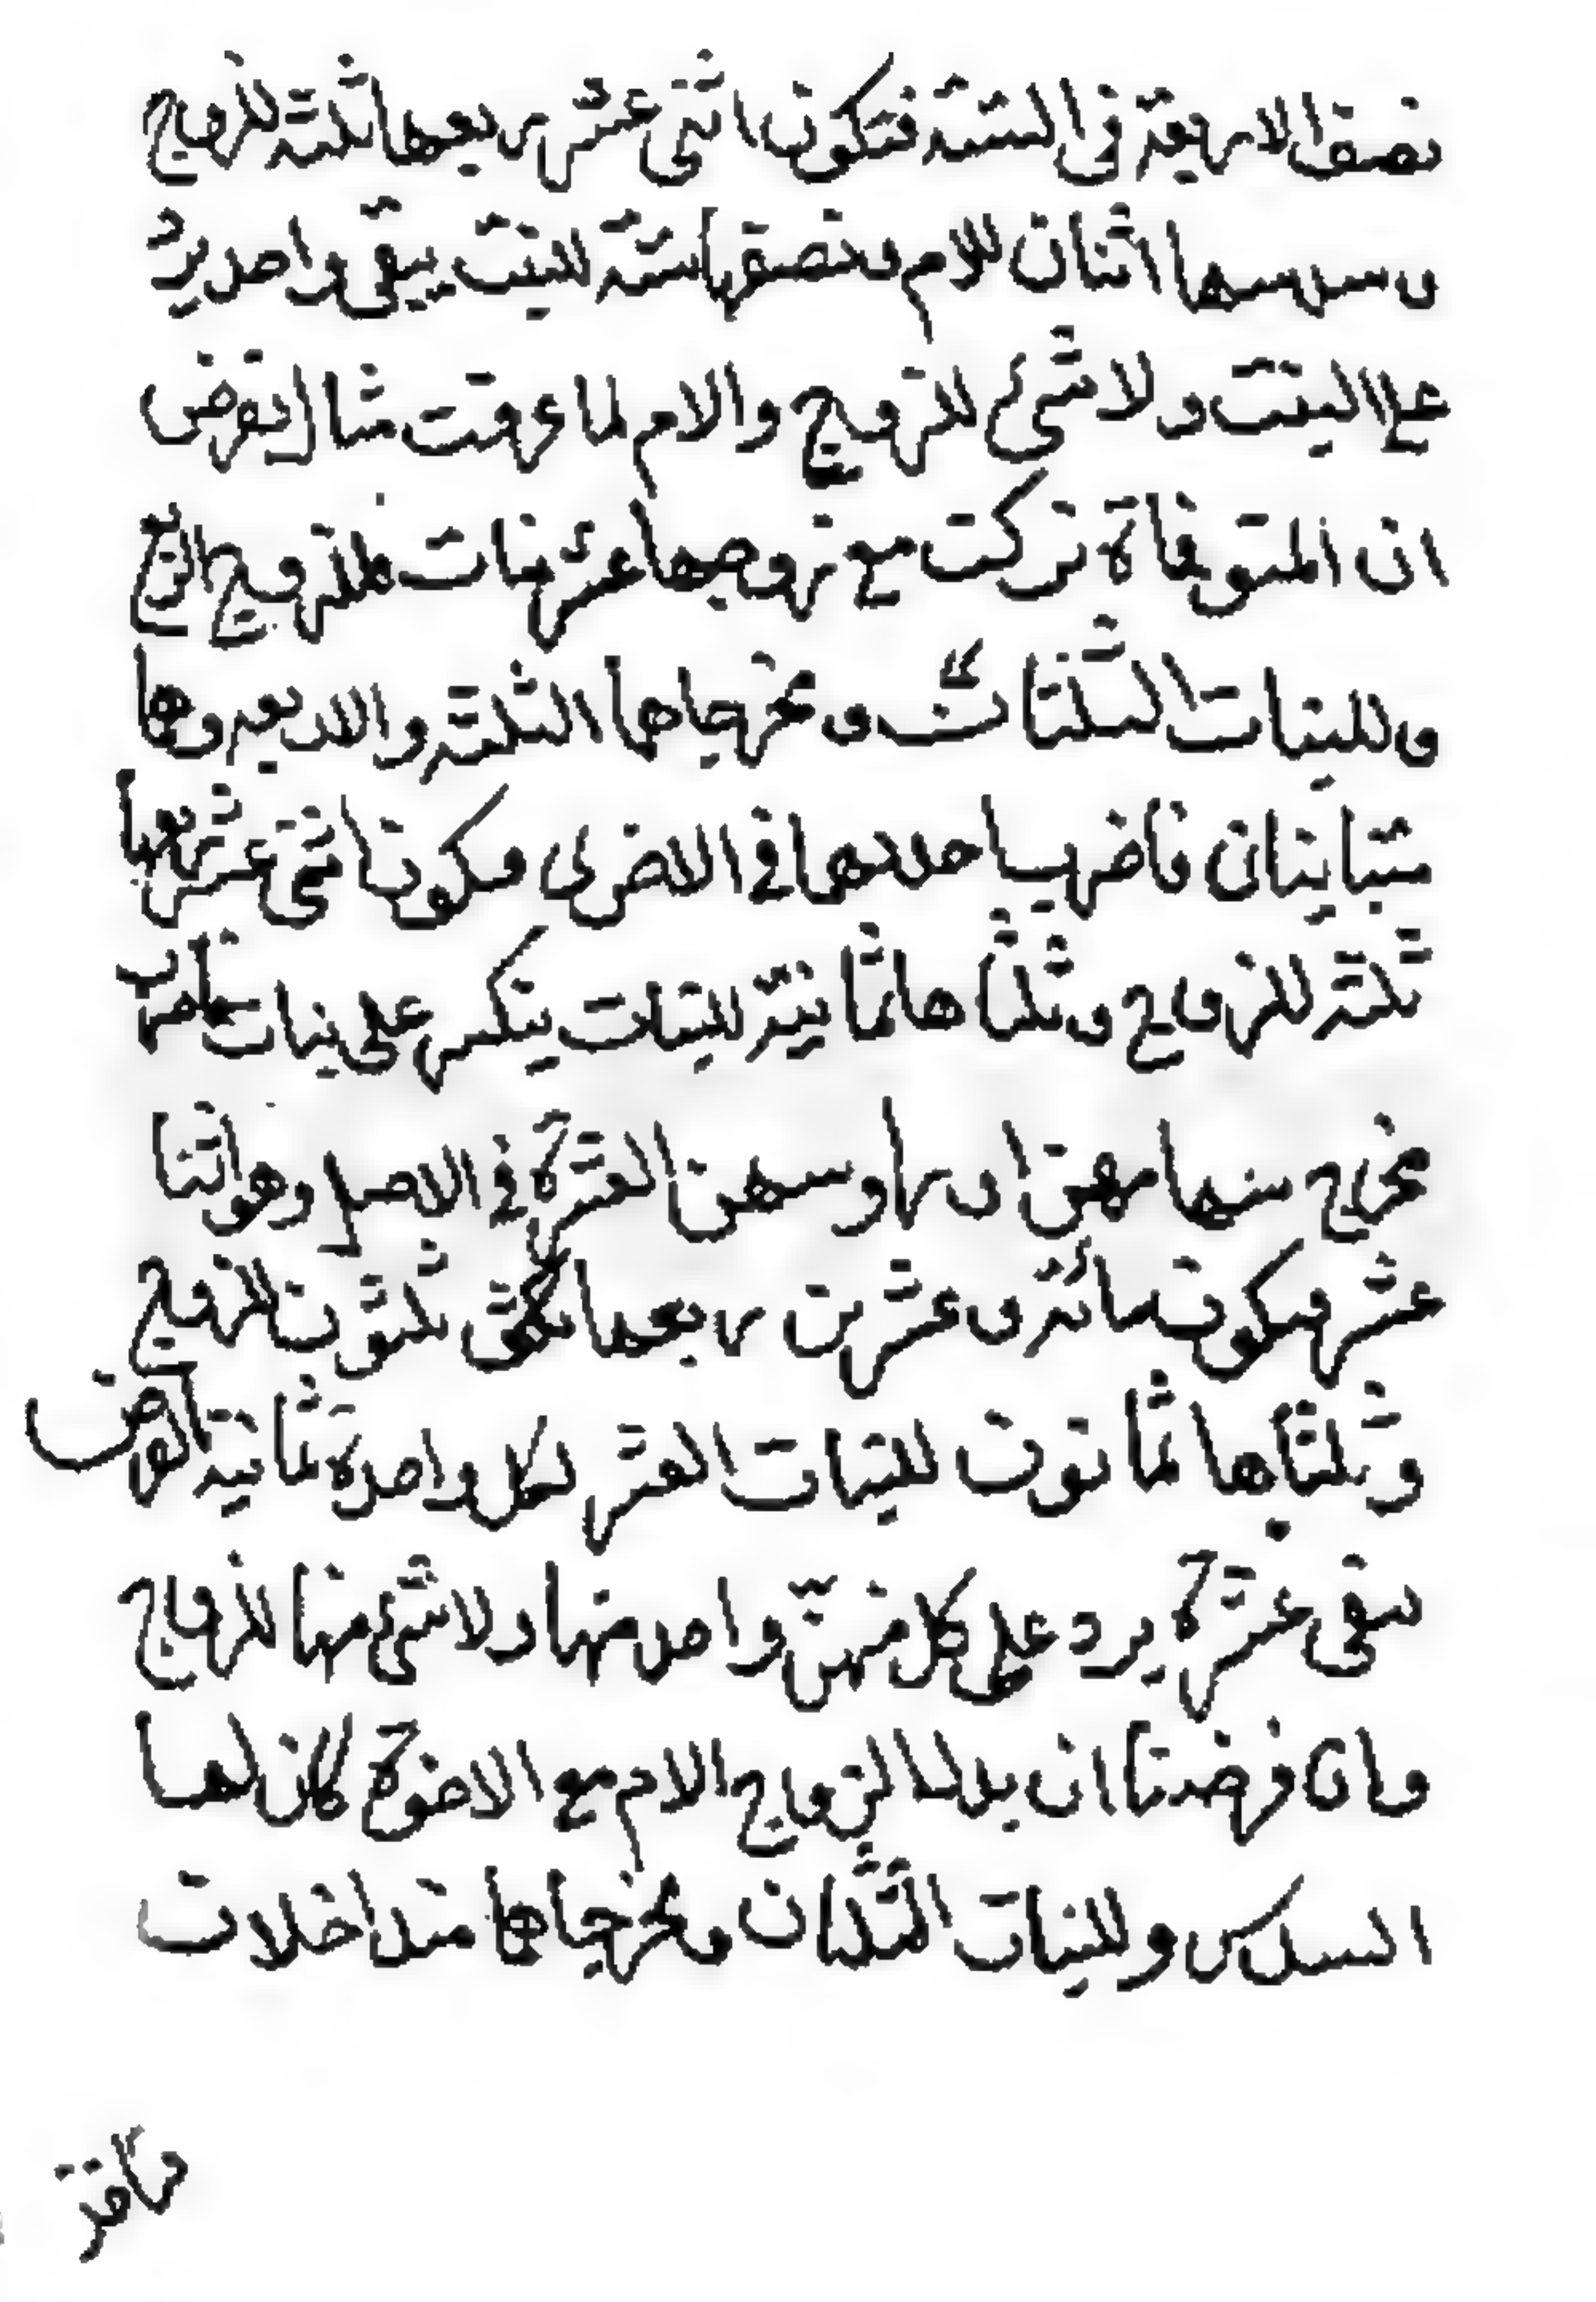 نصف الاربعة فى الستة فتكون اثنى عشر ربعها ثلثة للزوج
و سدسها اثنان للام و نصفها ستة للبنت يبقى واحد يرد
على البنت و لا شئ للزوج و الام لما عرفت مثال يفرض
ان المتوفاة تركت مع زوجها عشر بنات فللزوج الربع
و للبنات الثلثان و مخرجاها الثلثة و الاربعة و هما
متباينان فاضرب احدهما فى الاخرى فيكون اثنى عشر ربعها
ثلثة للزوج و ثلثاها ثمانية للبنات ينكسر على بنات فاضرب
مخرج سهامهن او رؤسهن العشرة فى الاصل وهو اثنا
عشر فيكون مائة و عشرين ربعها ثلثون للزوج
و ثلثاها ثمانون للبنات العشر لكل واحدة ثمانية الفرض
يبقى عشرة يرد على كل منهن واحد منها و لا شئ منها للزوج
و ان فرضنا ان بدل الزوج الام مع الاخوة كان لها
السدس و للبنات الثلثان و مخرجاها متداخلات